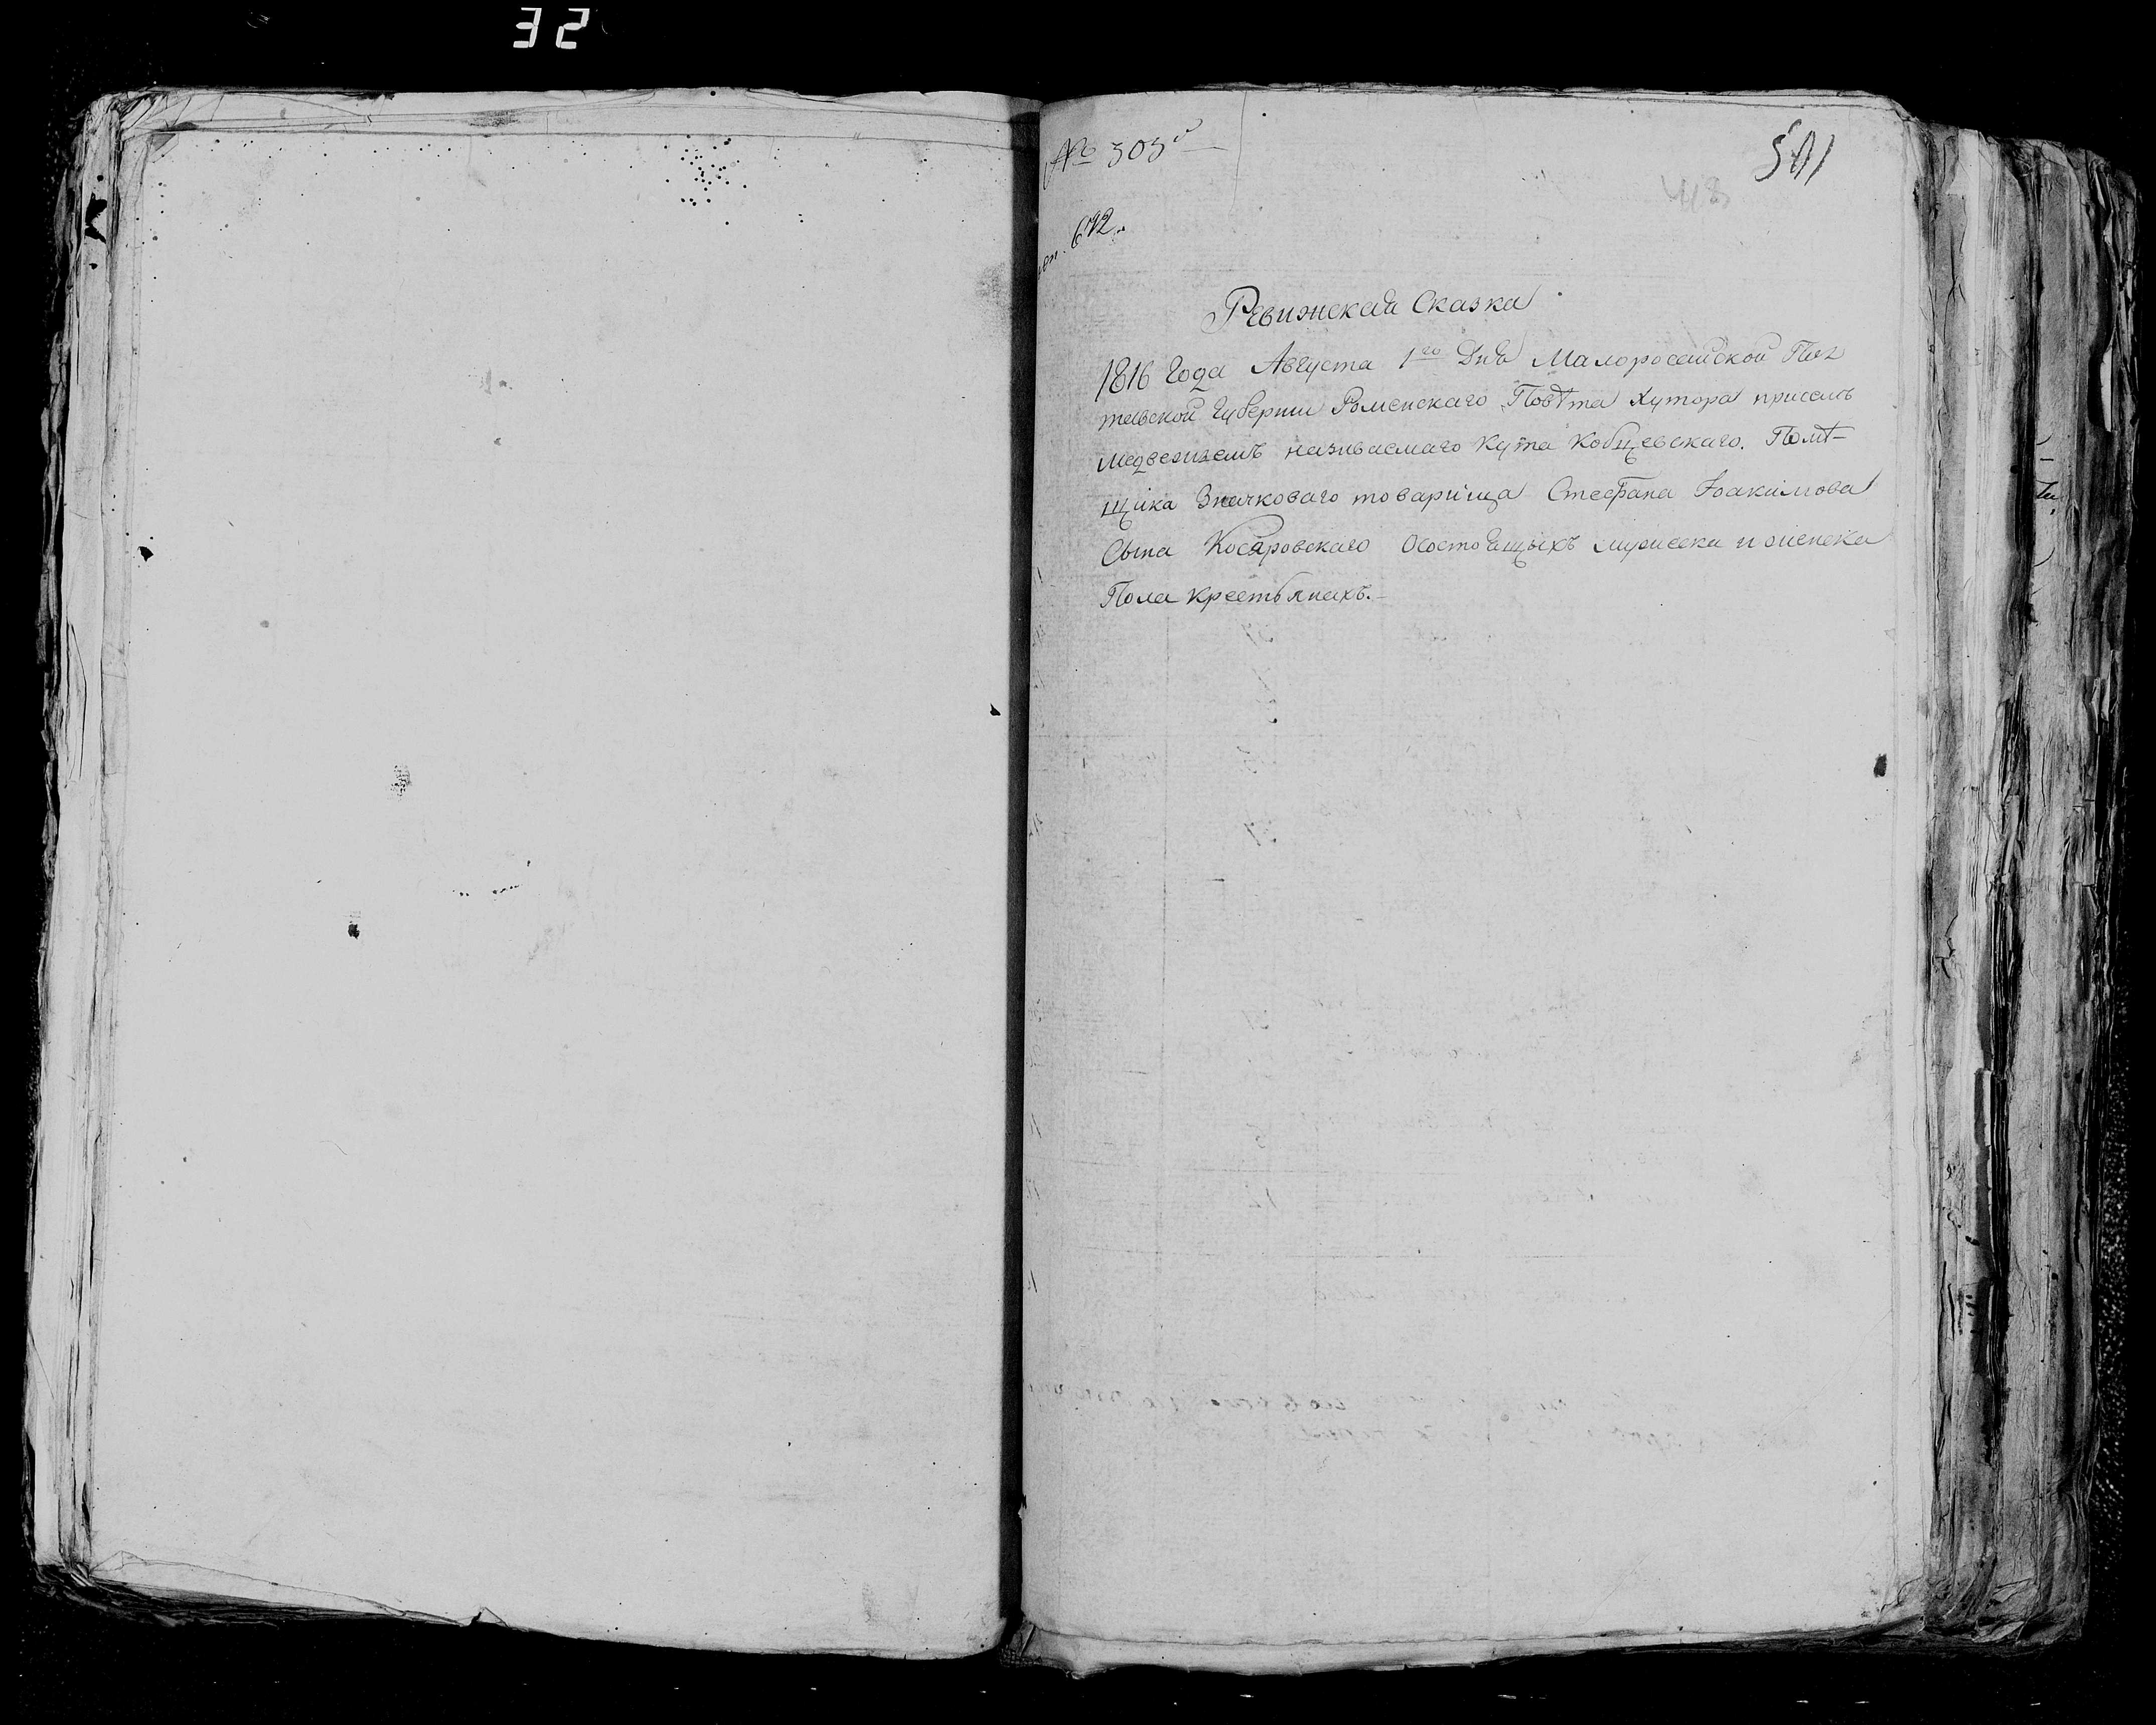 32
№ 303й
501
418
642.
Ревижская Сказка
1816 Года Августа 1го Дня Малоросийской Пол
тавской Губернии Роменскаго Повѣта Хутора присемъ
медвежъемъ називаемаго Кута Кобцевскаго. Помѣ-
щика Значковаго товарища Стефана Іоакимова
Сына Косяровскаго Осостоящыхъ мужеска и женска
Пола крестьянахъ.-